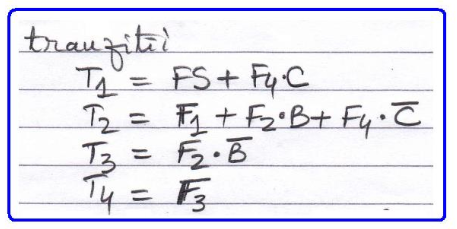 tranzitii
T₁ = FS + F₄·C
T₂ = F₁ + F₂·B + F₄·C̅
T₃ = F₂·B̅
T₄ = F₃